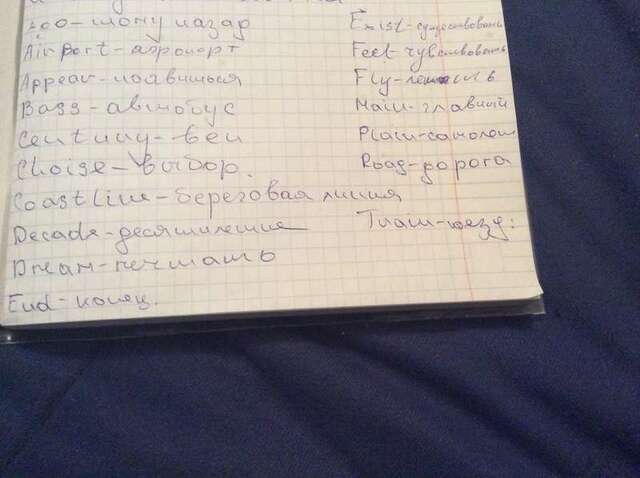 Airport-аэропорт
Appear-появиться
Bass-автобус
Century-век
Choise-выбор.
Coast Line-береговая линия
Decade-десятиление
Dream-мечтать
End-конец.
Exist-существовать
Feel-чувствовать
Fly-летать
Main-главный
Plain-самолет
Road-дорога